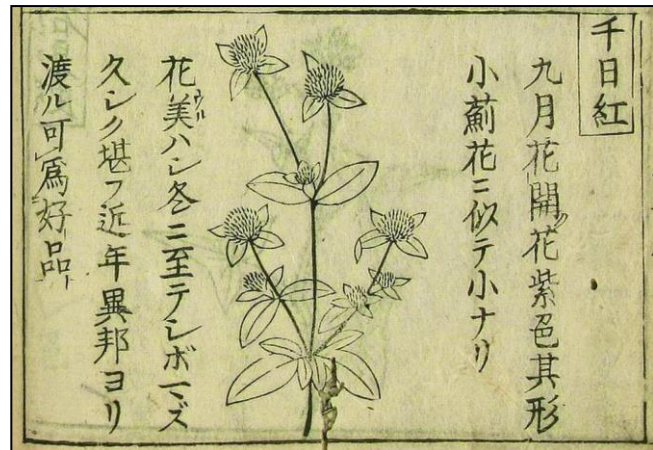 千日紅
九月花開花紫色其形
小薊花ニ似テ小ナリ
花美ハシ冬ニ至テシボマズ
久シク堪フ近年異邦ヨリ
渡ル可為好品